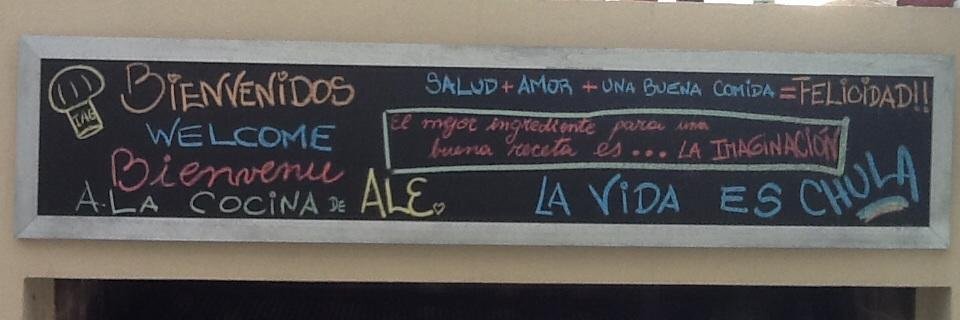 BIENVENIDOS
WELCOME
Bienvenu
A LA COCINA DE ALE.
SALUD + AMOR + UNA BUENA COMIDA = FELICIDAD!!
El mejor ingrediente para una
buena receta es... LA IMAGINACIÓN
LA VIDA ES CHULA